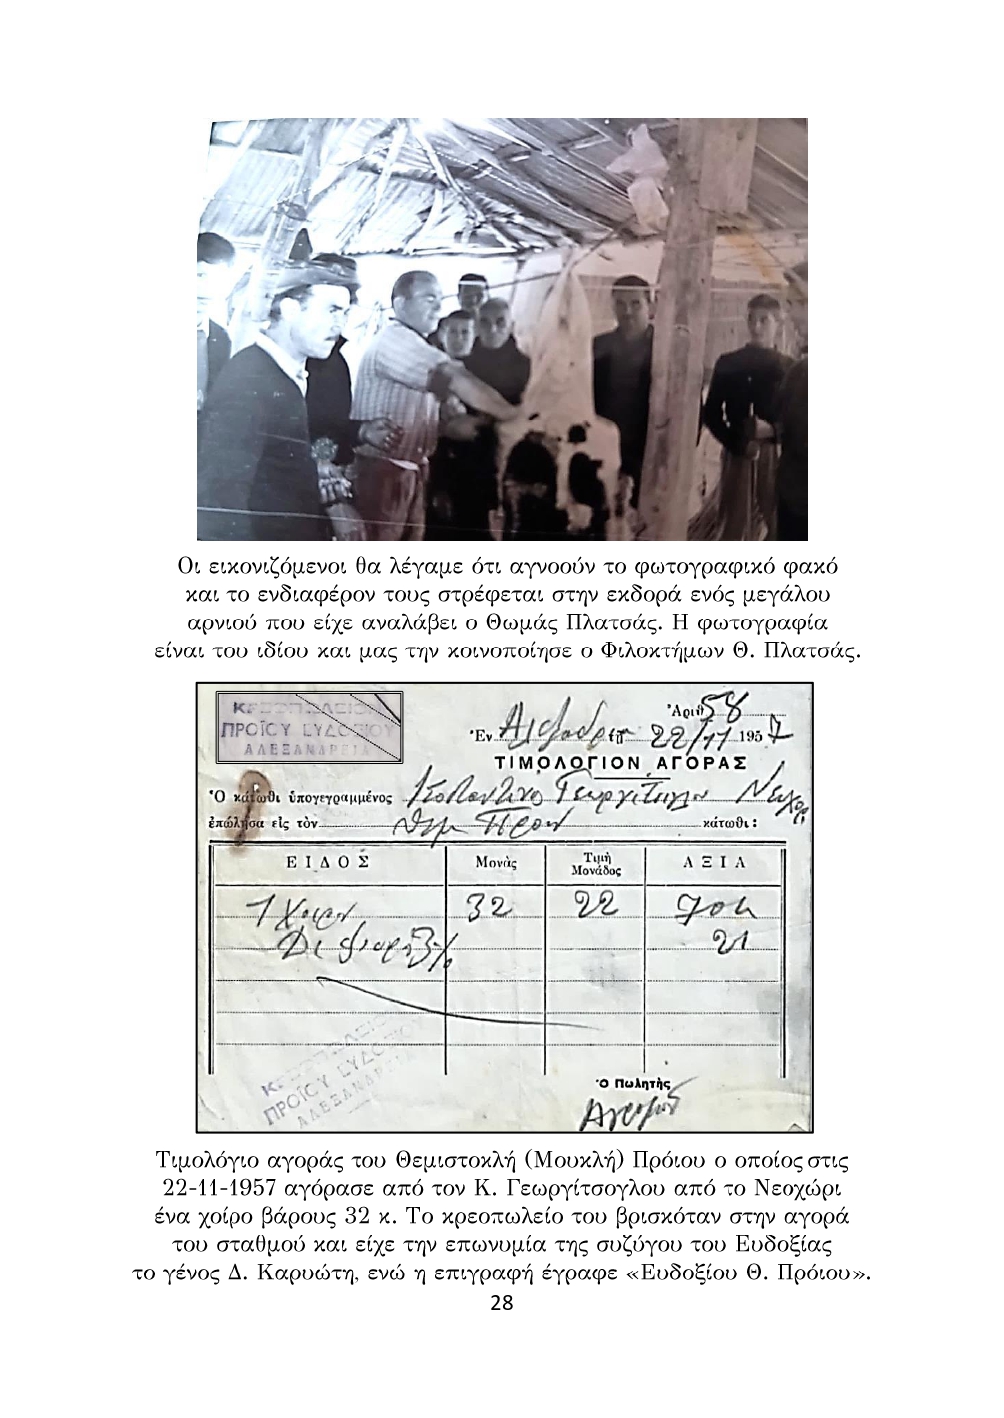 Οι εικονιζόμενοι θα λέγαμε ότι αγνοούν το φωτογραφικό φακό
και το ενδιαφέρον τους στρέφεται στην εκδορά ενός μεγάλου
αρνιού που είχε αναλάβει ο Θωμάς Πλατσάς. Η φωτογραφία
είναι του ιδίου και μας την κοινοποίησε ο Φιλοκτήμων Θ. Πλατσάς.
ΠΡΟΪΟΥ ΕΥΔΟΞΙΟΥ
ΑΛΕΞΑΝΔΡΕΙΑ
Ἀριθ. 58
Ἐν τῇ 22/11 1957
ΤΙΜΟΛΟΓΙΟΝ ΑΓΟΡΑΣ
Ὁ κάτωθι ὑπογεγραμμένος
ἐπώλησα εἰς τὸν Θεμ κάτωθι:
ΕΙΔΟΣ Μονὰς Τιμὴ Μονάδος ΑΞΙΑ
1 Χοίρον 32 22 704
3% 21
ΠΡΟΪΟΥ ΕΥΔΟΞΙΟΥ
ΑΛΕΞΑΝΔΡΕΙΑ
Ὁ Πωλητὴς
Τιμολόγιο αγοράς του Θεμιστοκλή (Μουκλή) Πρόιου ο οποίος στις
22-11-1957 αγόρασε από τον Κ. Γεωργίτσογλου από το Νεοχώρι
ένα χοίρο βάρους 32 κ. Το κρεοπωλείο του βρισκόταν στην αγορά
του σταθμού και είχε την επωνυμία της συζύγου του Ευδοξίας
το γένος Δ. Καρυώτη, ενώ η επιγραφή έγραφε «Ευδοξίου Θ. Πρόιου».
28